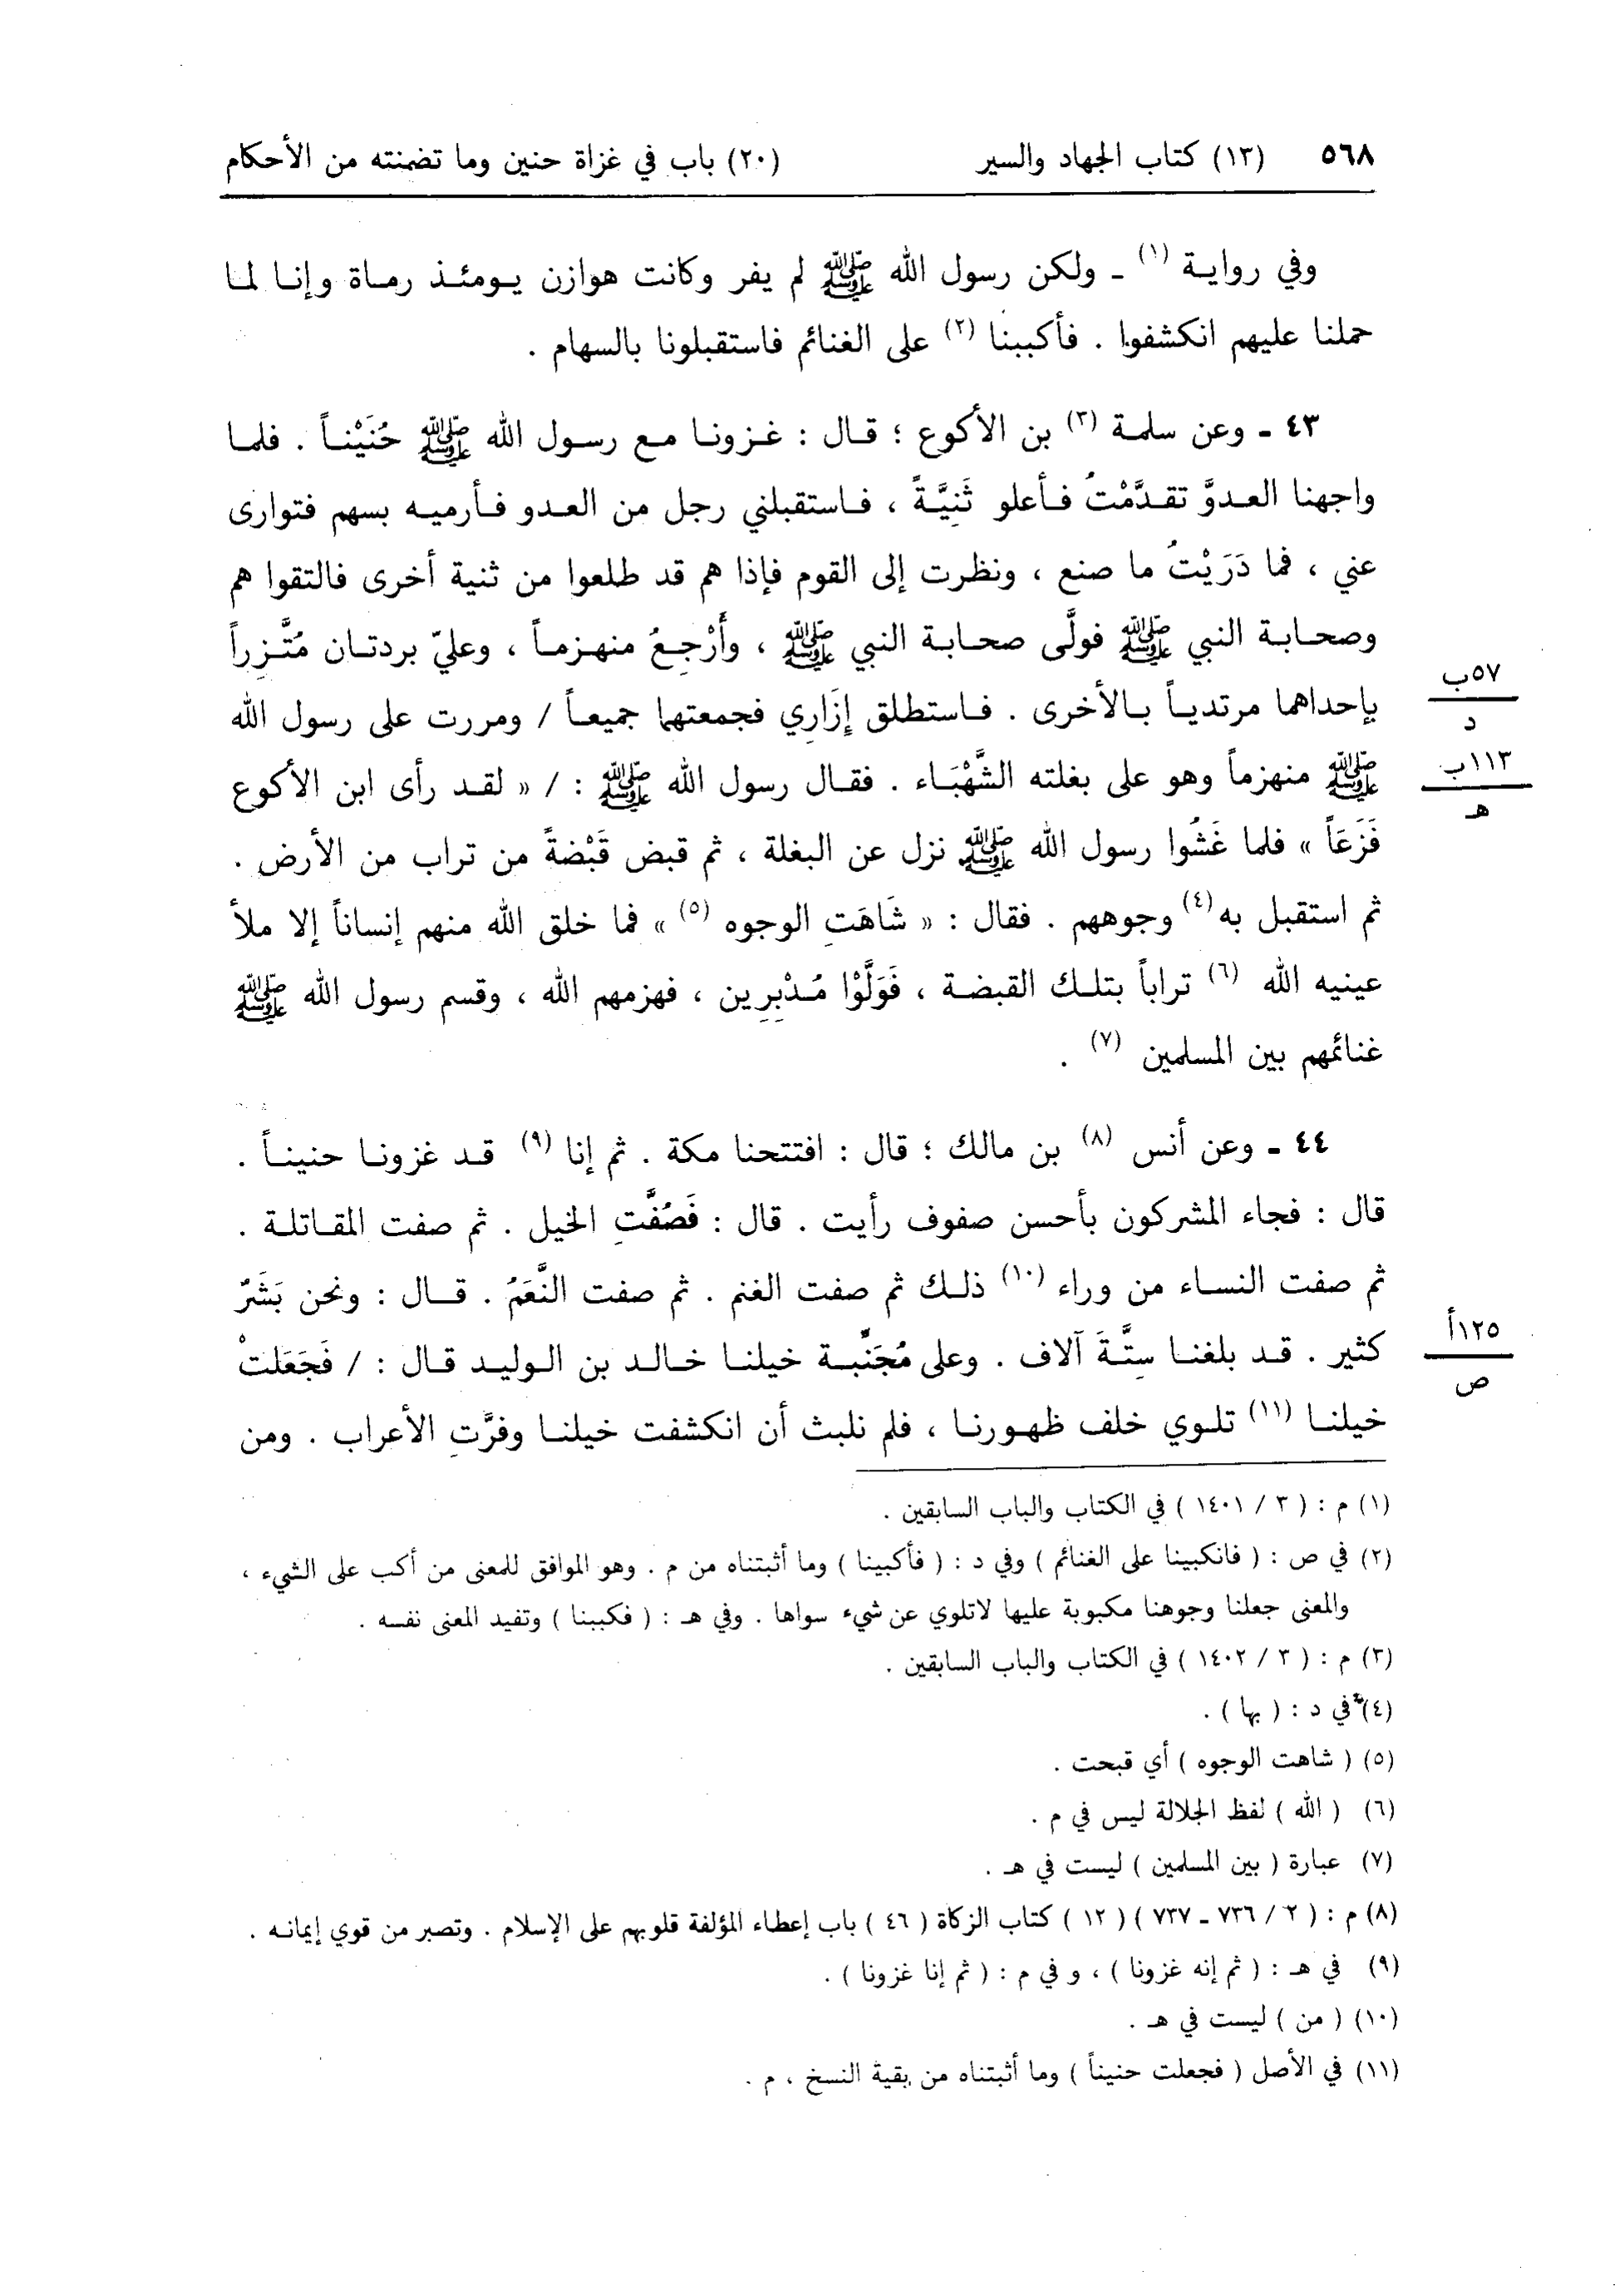 ٥٦٨ (١٣) كتاب الجهاد والسير (٢٠) باب في غزاة حنين وما تضمنته من الأحكام
وفي روايـة (١) ـ ولكن رسول الله ﷺ لم يفر وكانت هوازن يـومئـذ رمـاة وإنـا لمـا
حملنا عليهم انكشفوا . فأكببنا (٢) على الغنائم فاستقبلونا بالسهام .
٤٣ ـ وعن سلمـة (٣) بن الأكوع ؛ قـال : غـزونـا مـع رسـول الله ﷺ حُنَيْنـاً . فلمـا
واجهنا العـدوَّ تقـدَّمْتُ فـأعلو ثَنِيَّـةً ، فـاستقبلني رجل من العـدو فـأرميـه بسهم فتوارى
عني ، فما دَرَيْتُ ما صنع ، ونظرت إلى القوم فإذا هم قد طلعوا من ثنية أخرى فالتقوا هم
وصحـابـة النبي ﷺ فولَّى صحـابـة النبي ﷺ ، وأَرْجِـعُ منهـزمـاً ، وعليّ بردتـان مُتَّـزِراً
بإحداهما مرتديـاً بـالأخرى . فـاستطلق إِزَارِي فجمعتهما جميعـاً / ومررت على رسول الله
ﷺ منهزماً وهو على بغلته الشَّهْبَـاء . فقـال رسول الله ﷺ : / « لقـد رأى ابن الأكوع
فَزَعَاً » فلما غَشُوا رسول الله ﷺ نزل عن البغلة ، ثم قبض قَبْضةً من تراب من الأرض .
ثم استقبل به (٤) وجوههم . فقال : « شَاهَتِ الوجوه (٥) » فما خلق الله منهم إنساناً إلا ملأ
عينيه الله (٦) تراباً بتلـك القبضـة ، فَوَلَّوْا مُـدْبِرِين ، فهزمهم الله ، وقسم رسول الله ﷺ
غنائمهم بين المسلمين (٧) .
٤٤ ـ وعن أنس (٨) بن مالك ؛ قال : افتتحنا مكة . ثم إنا (٩) قـد غزونـا حنينـاً .
قال : فجاء المشركون بأحسن صفوف رأيت . قال : فَصُفَّتِ الخيل . ثم صفت المقـاتلـة .
ثم صفت النسـاء من وراء (١٠) ذلـك ثم صفت الغنم . ثم صفت النَّعَمُ . قـال : ونحن بَشَرٌ
كثير . قـد بلغنـا سِتَّـةَ آلاف . وعلى مُجَنِّبـة خيلنـا خـالـد بن الـوليـد قـال : / فَجَعَلتْ
خيلنـا (١١) تلـوي خلف ظهـورنـا ، فلم نلبث أن انكشفت خيلنـا وفرَّتِ الأعراب . ومن
٥٧ب
د
١١٣ب
هـ
١٢٥أ
ص
(١) م : ( ٣ / ١٤٠١ ) في الكتاب والباب السابقين .
(٢) في ص : ( فانكبينا على الغنائم ) وفي د : ( فأكبينا ) وما أثبتناه من م . وهو الموافق للمعنى من أكب على الشيء ،
والمعنى جعلنا وجوهنا مكبوبة عليها لاتلوي عن شيء سواها . وفي هـ : ( فكببنا ) وتفيد المعنى نفسه .
(٣) م : ( ٣ / ١٤٠٢ ) في الكتاب والباب السابقين .
(٤) في د : ( بها ) .
(٥) ( شاهت الوجوه ) أي قبحت .
(٦) ( الله ) لفظ الجلالة ليس في م .
(٧) عبارة ( بين المسلمين ) ليست في هـ .
(٨) م : ( ٢ / ٧٣٦ ـ ٧٣٧ ) ( ١٢ ) كتاب الزكاة ( ٤٦ ) باب إعطاء المؤلفة قلوبهم على الإسلام . وتصبر من قوي إيمانـه .
(٩) في هـ : ( ثم إنه غزونا ) ، و في م : ( ثم إنا غزونا ) .
(١٠) ( من ) ليست في هـ .
(١١) في الأصل ( فجعلت حنيناً ) وما أثبتناه من بقية النسخ ، م .